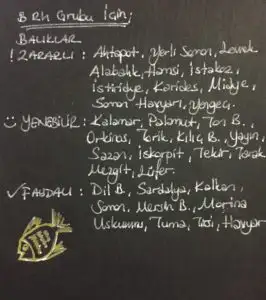 B Rh Grubu İçin;
BALIKLAR
! ZARARLI : Ahtapot, Yerli Somon, Levrek
Alabalık, Hamsi, İstakoz,
İstiridye, Karides, Midye,
Somon Havyarı, Yengeç.
☺ YENEBİLİR : Kalamar, Palamut, Ton B.,
Orkinos, Torik, Kılıç B., Yayın,
Sazan, İskorpit, Tekir, Tarak
Mezgit, Lüfer.
✓ FAYDALI : Dil B., Sardalya, Kalkan,
Somon, Mersin B., Morina
Uskumru, Turna, Havyar